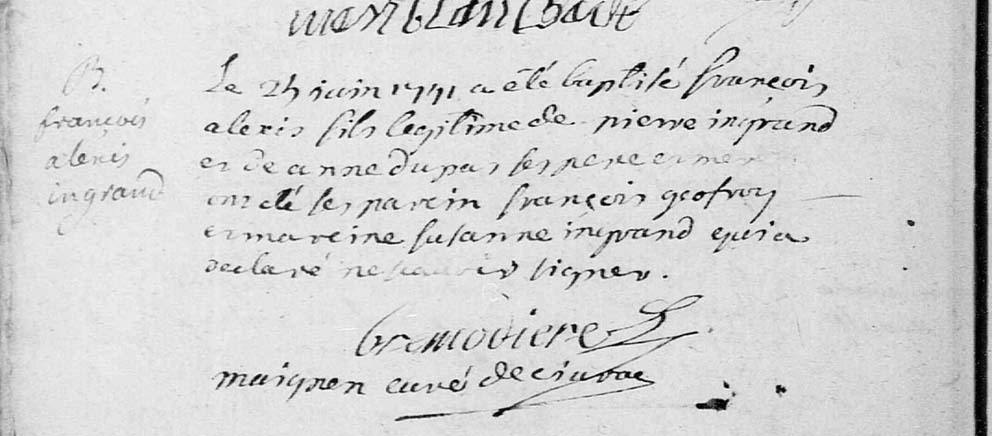 B.
françois
alexis
ingrand
Le 25 juin 1741 a été baptisé françois
alexis fils legitime de pierre ingrand
et de anne dupas ses pere et mere
ont été ses parein françois geofroy
et mareine susanne ingrand qui a
declaré ne scavoir signer.
maignen curé de